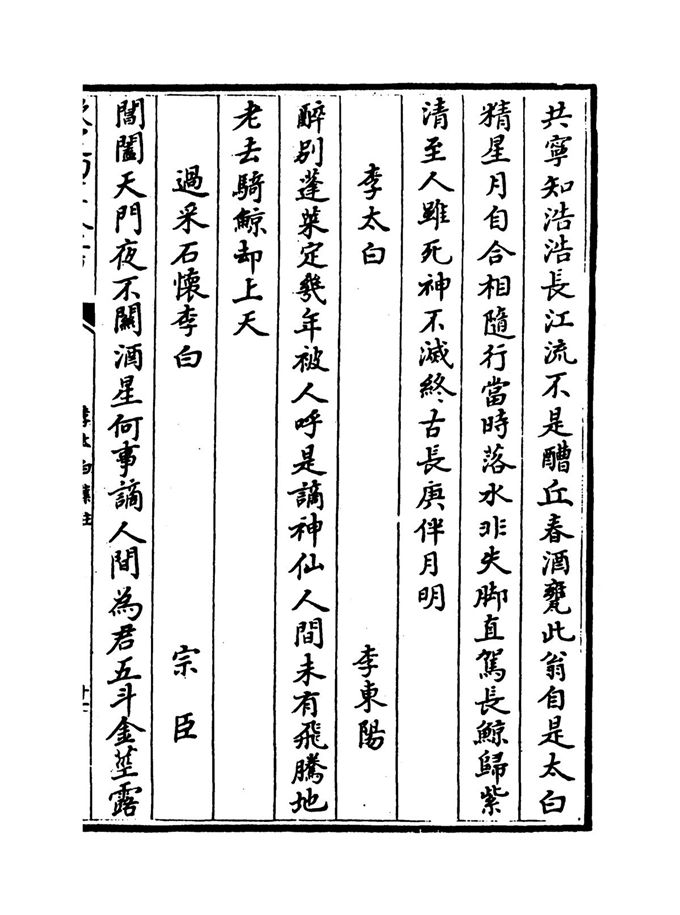 共寧知浩浩長江流不是醩丘春酒甕此翁自是太白
精星月自合相隨行當時落水非失脚直駕長鯨歸紫
清至人雖死神不滅終古長庚伴月明
李太白　李東陽
醉别蓬萊定㡬年被人呼是謫神仙人間未有飛騰地
老去騎鯨却上天
過采石懷李白　宗臣
閶闔天門夜不關酒星何事謫人間為君五斗金莖露
李太白集注